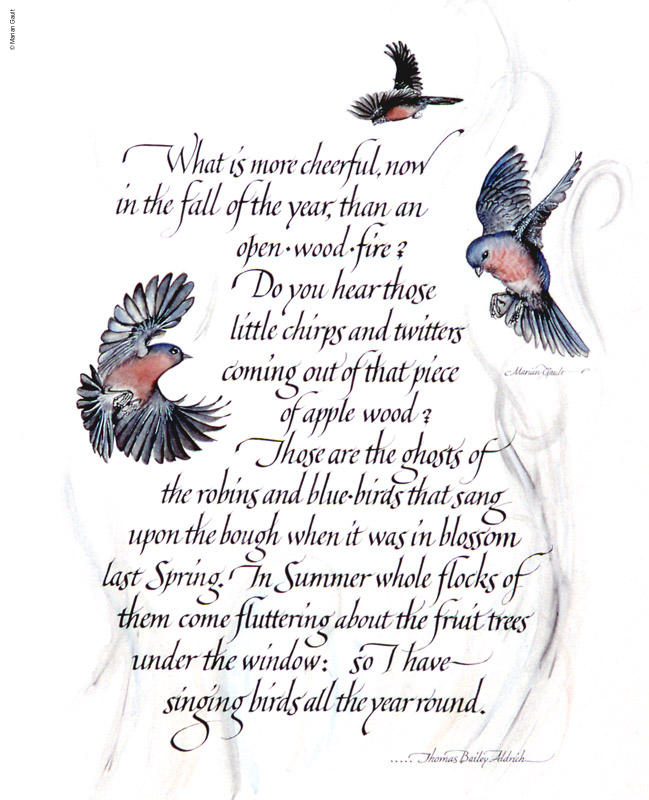 © Marian Gault
What is more cheerful, now
in the fall of the year, than an
open·wood·fire?
Do you hear those
little chirps and twitters
coming out of that piece
of apple wood?
Those are the ghosts of
the robins and blue·birds that sang
upon the bough when it was in blossom
last Spring. In Summer whole flocks of
them come fluttering about the fruit trees
under the window: so I have
singing birds all the year round.
Marian Gault
..... Thomas Bailey Aldrich